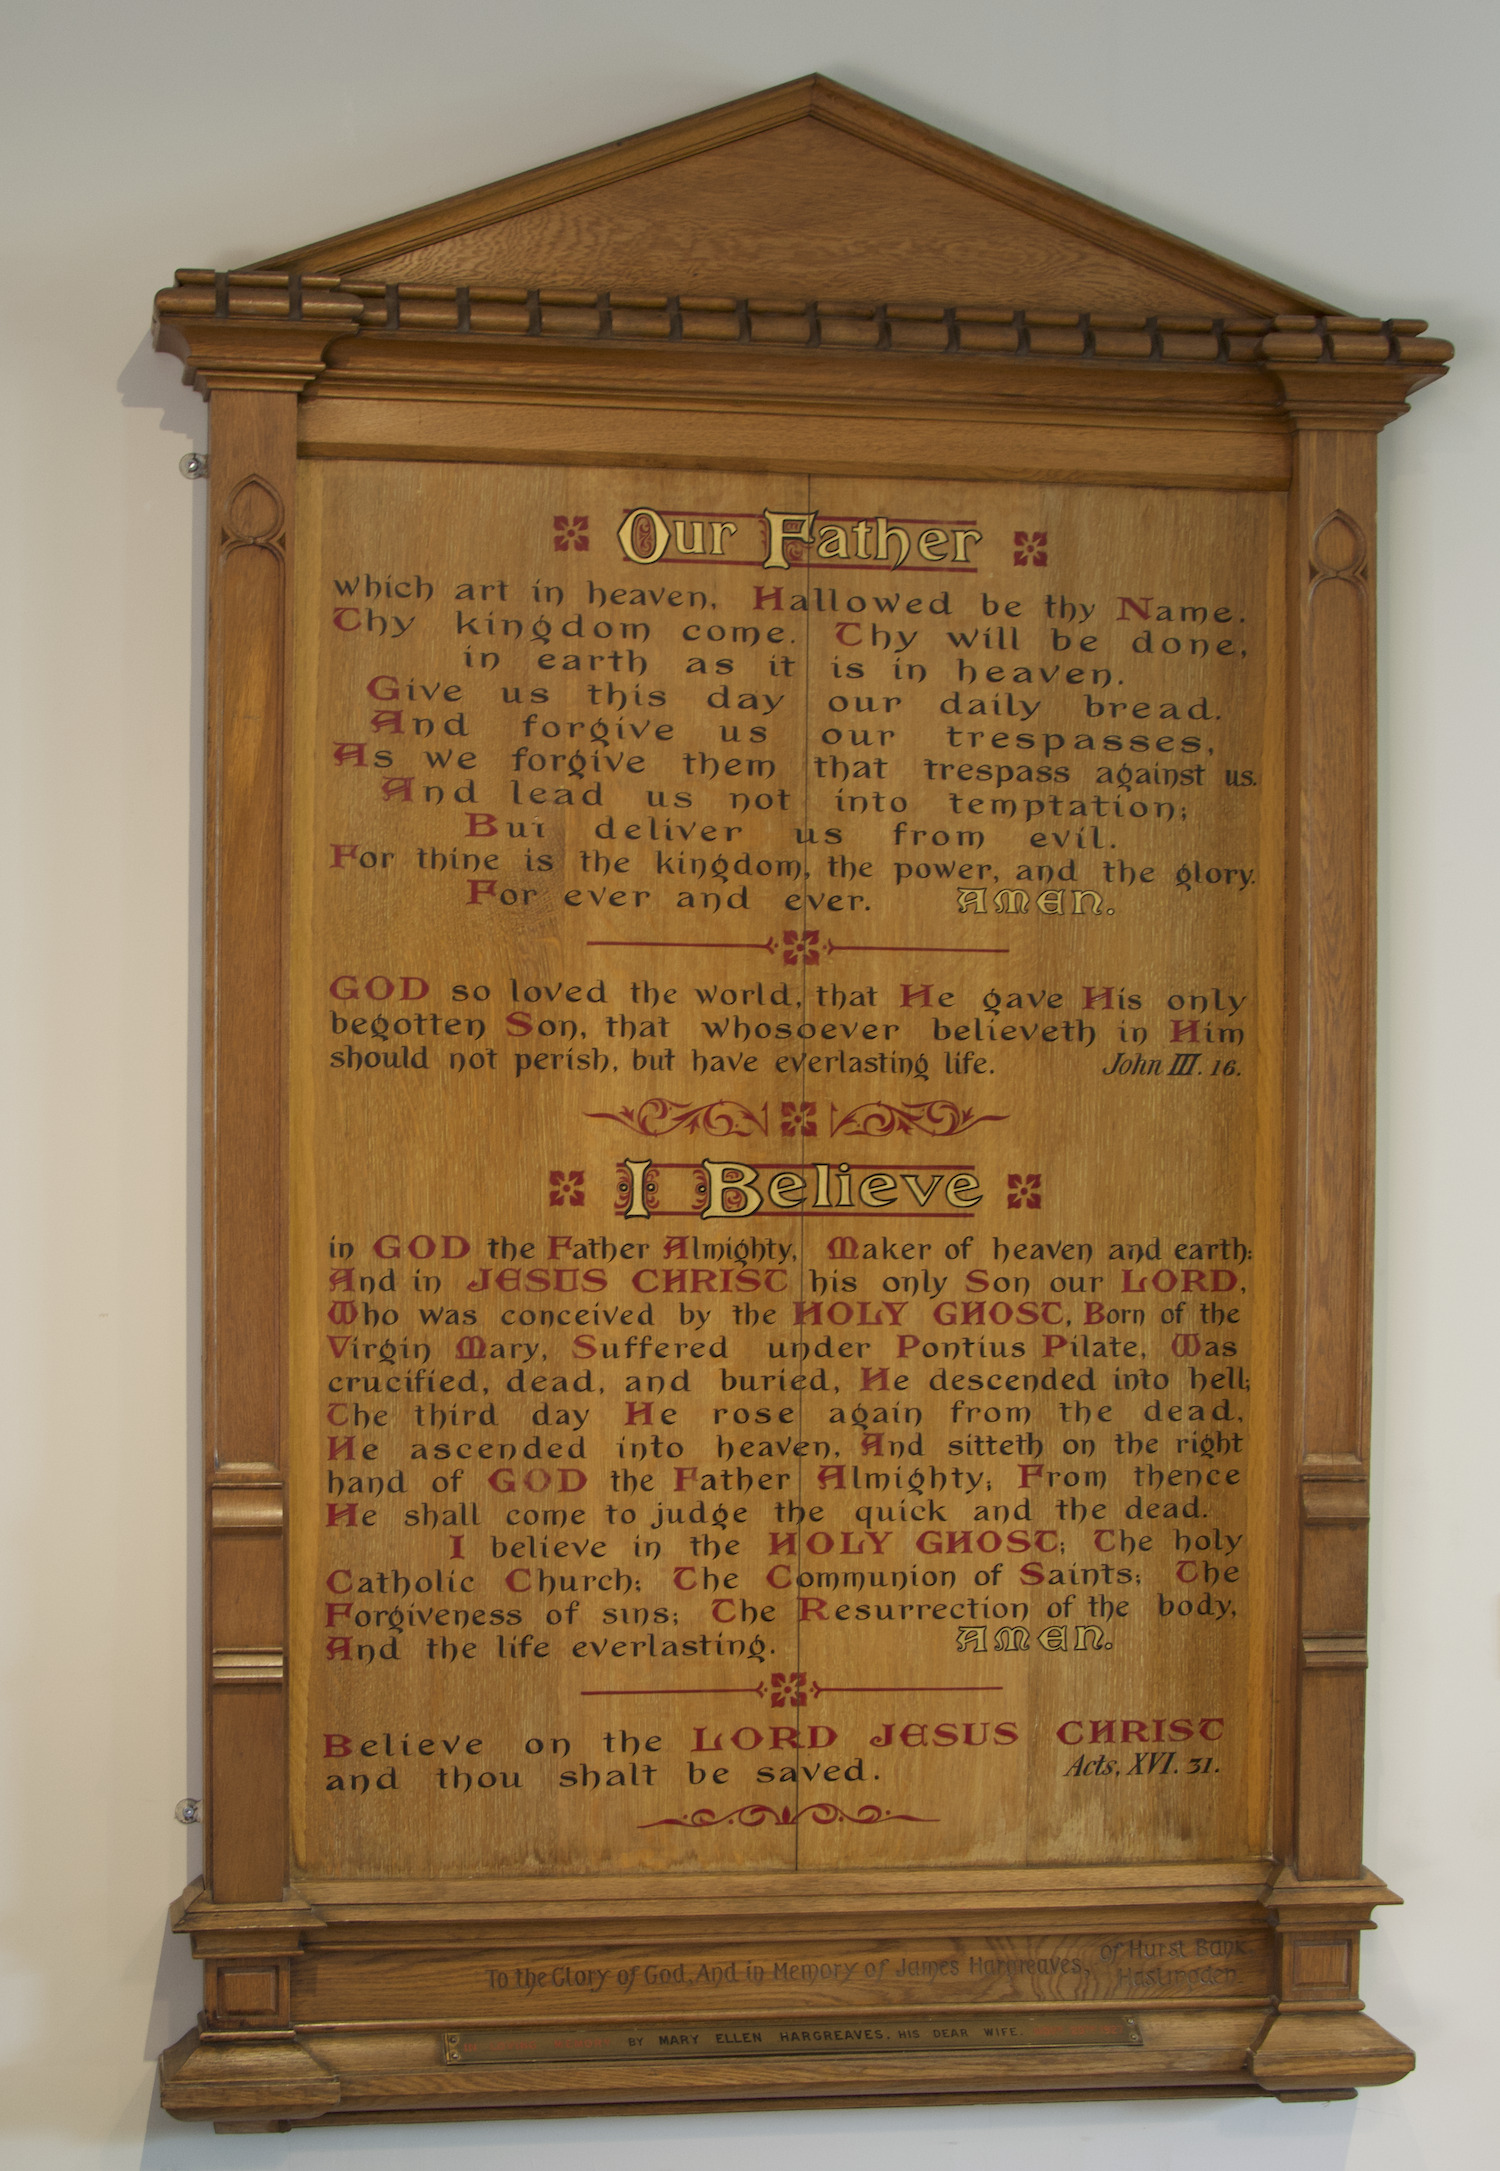 Our Father
which art in heaven, Hallowed be thy Name.
Thy kingdom come. Thy will be done,
in earth as it is in heaven.
Give us this day our daily bread.
And forgive us our trespasses,
As we forgive them that trespass against us.
And lead us not into temptation;
But deliver us from evil.
For thine is the kingdom, the power, and the glory.
For ever and ever. AMEN.
GOD so loved the world, that He gave His only
begotten Son, that whosoever believeth in Him
should not perish, but have everlasting life. John III. 16.
I Believe
in GOD the Father Almighty, Maker of heaven and earth:
And in JESUS CHRIST his only Son our LORD,
Who was conceived by the HOLY GHOST, Born of the
Virgin Mary, Suffered under Pontius Pilate, Was
crucified, dead, and buried, He descended into hell;
The third day He rose again from the dead,
He ascended into heaven, And sitteth on the right
hand of GOD the Father Almighty; From thence
He shall come to judge the quick and the dead.
I believe in the HOLY GHOST; The holy
Catholic Church; The Communion of Saints; The
Forgiveness of sins; The Resurrection of the body,
And the life everlasting. AMEN.
Believe on the LORD JESUS CHRIST
and thou shalt be saved. Acts, XVI. 31.
To the Glory of God, And in Memory of James Hargreaves, of Hurst Bank
Haslingden
BY MARY ELLEN HARGREAVES. HIS DEAR WIFE.